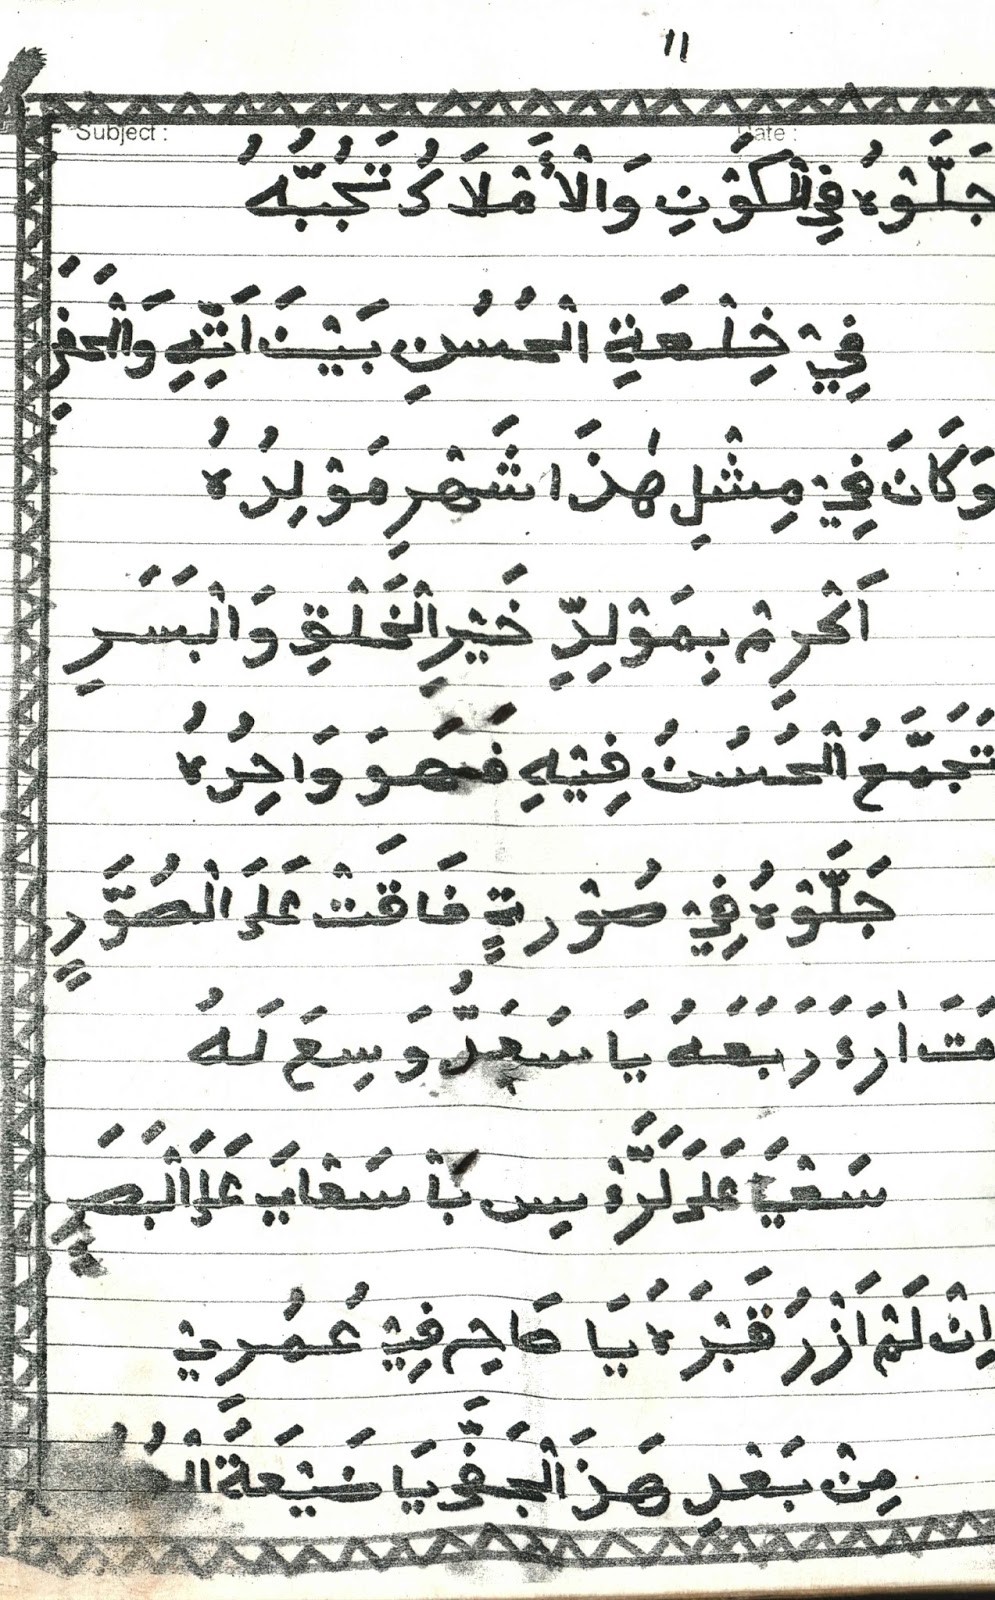 11
Subject : Date :
جَلَّوْهُ فِي الْكَوْنِ وَالْأَمْلَاكُ تَحُبُّهُ
فِيْ خِلْعَةِ الْحُسُنِ بَيْنَ اتِّيهِ وَالْحَفَرِ
وَكَانَ فِيْ مِثْلِ هٰذَا شَهْرِ مَوْلِدُهُ
اَكْرِمْ بِمَوْلِدِ خَيْرِ الْخَلْقِ وَالْبَسَرِ
تَجَمَّعُ الْحُسُنُ فِيْهِ فَهَوَ وَاحِدُهُ
جَلَّوْهُ فِيْ صُوْرَةٍ فَاقَتْ عَلَى الصُّوَرِ
مَتَ اَرَهَ رَبَعَهُ يَا سَعَدُ وَسِعَ لَهُ
سَعْيًا عَلَى
سَعْيًا عَلَى الْبَصَرِ
اِنْ لَمْ اَزُرْ قَبْرَهُ يَا صَاحِ فِيْ عُمُرِيْ
مِنْ بَعْدِ هَذَا الْجَفَّ يَا ضَيْعَةَ